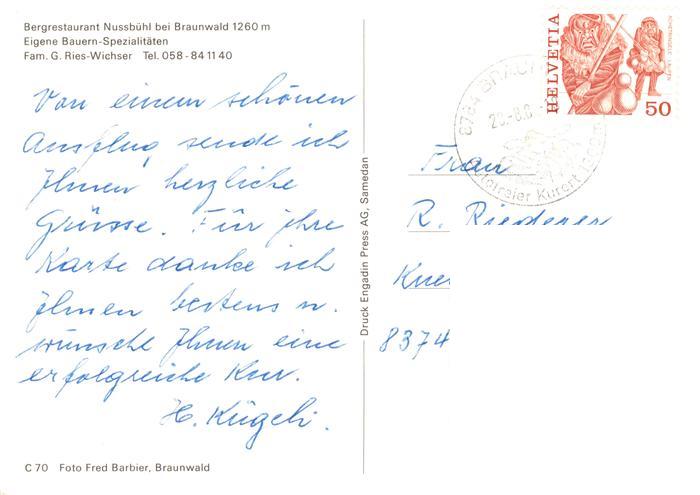 Bergrestaurant Nussbühl bei Braunwald 1260 m
Eigene Bauern-Spezialitäten
Fam. G. Ries-Wichser Tel. 058-84 11 40
Von einem schönen
Ausflug sende ich
Ihnen herzliche
Grüsse. Für ihre
Karte danke ich
Ihnen bestens u.
wünsche Ihnen eine
erfolgreiche Kur.
H. Kügeli.
C 70 Foto Fred Barbier, Braunwald
Druck Engadin Press AG, Samedan
HELVETIA
50
8784 BRAUN
Kurort
Frau
R. Riederer
8374